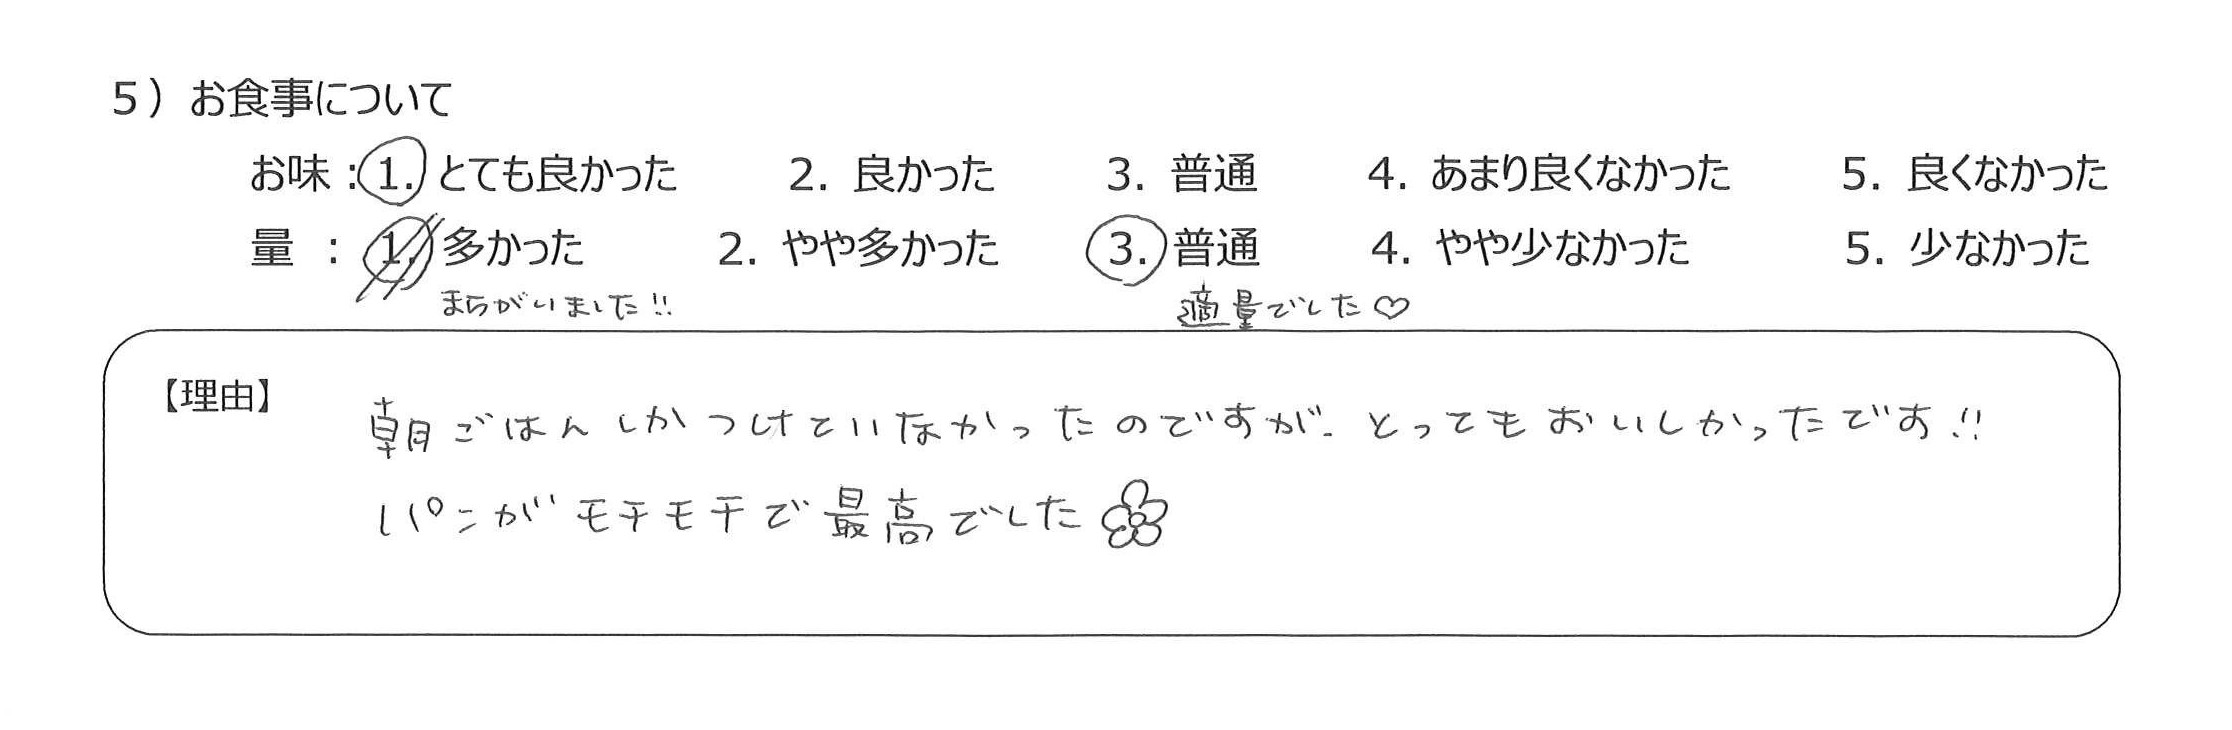 5）お食事について
お味：1. とても良かった　2. 良かった　3. 普通　4. あまり良くなかった　5. 良くなかった
量：1. 多かった　2. やや多かった　3. 普通　4. やや少なかった　5. 少なかった
まちがいました!!　適量でした♡
【理由】
朝ごはんしかつけていなかったのですが、とってもおいしかったです!!
パンがモチモチで最高でした